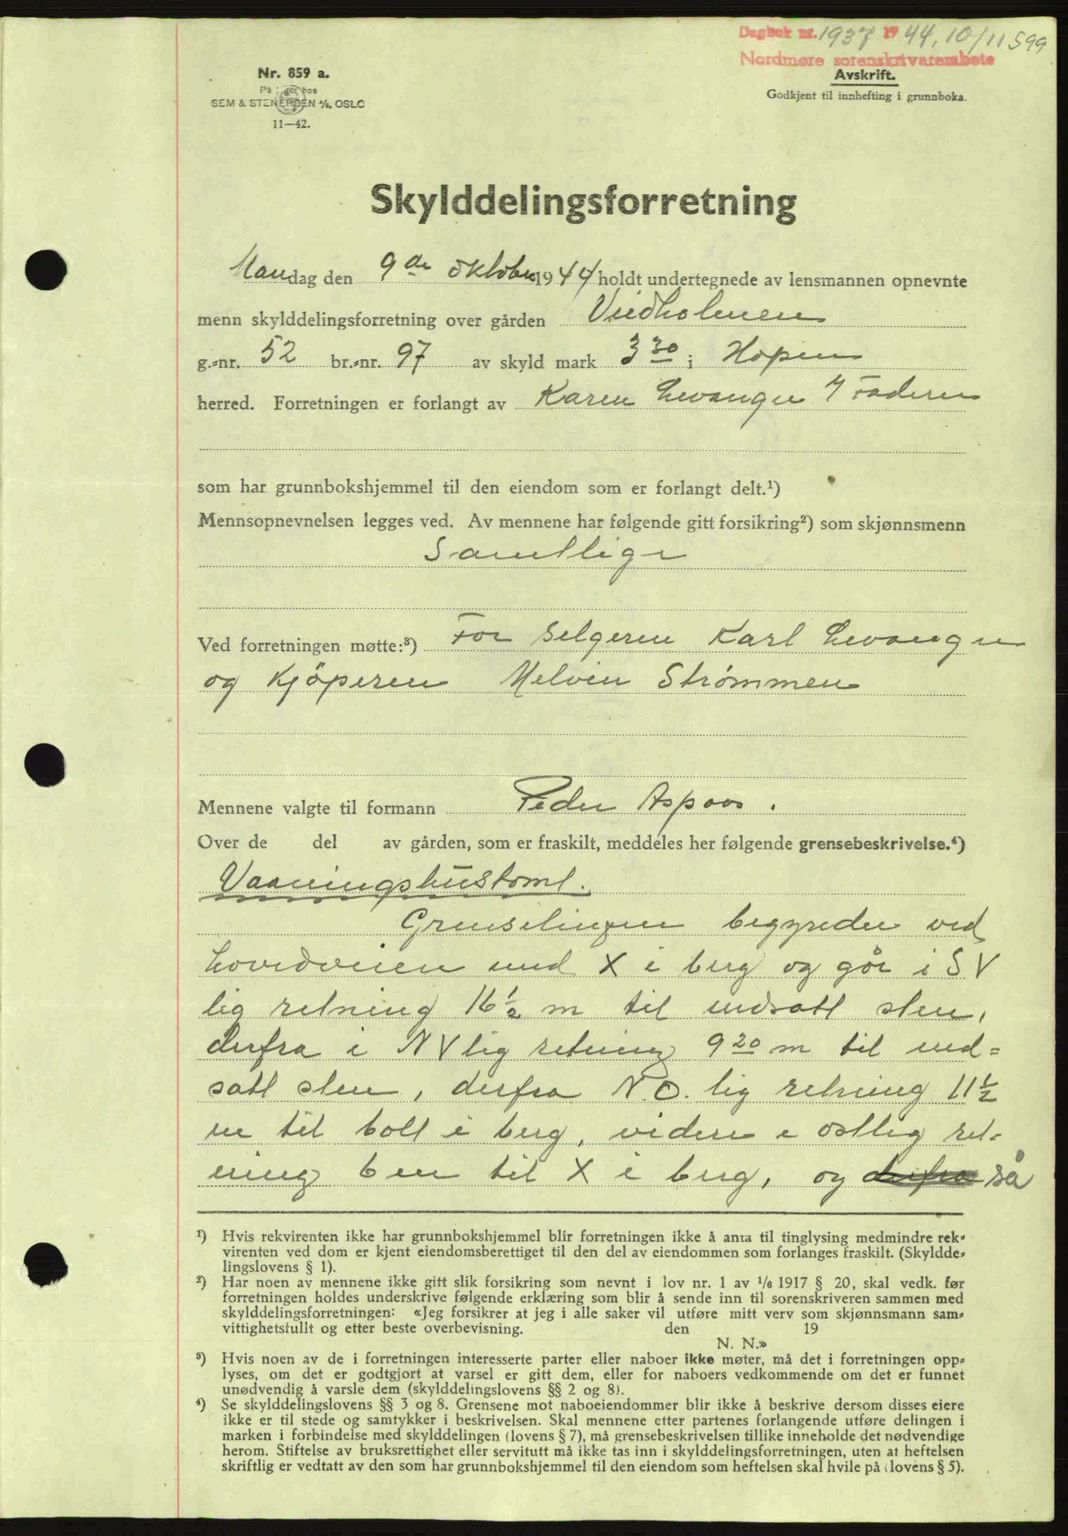 Dagbok nr. 1937 1944, 10/11 599
Nordmøre sorenskriverembete
Nr. 859 a.
Avskrift.
På lager hos
SEM & STENERSEN A/S, OSLO
Godkjent til innhefting i grunnboka.
11—42.
Skylddelingsforretning
Mandag den 9de oktober 1944 holdt undertegnede av lensmannen opnevnte
menn skylddelingsforretning over gården Vedholmen
g.-nr. 52 br.-nr. 97 av skyld mark 3 30 i Hopen
herred. Forretningen er forlangt av Karen Levanger
som har grunnbokshjemmel til den eiendom som er forlangt delt.¹)
Mennsopnevnelsen legges ved. Av mennene har følgende gitt forsikring²) som skjønnsmenn
Samtlige
Ved forretningen møtte:³) For selgeren Karl Levanger
og Kjøperen Melvin Strømmen
Mennene valgte til formann Peder Aspaas.
Over de del av gården, som er fraskilt, meddeles her følgende grensebeskrivelse.⁴)
Vaaningshustomt.
Grenselinjen begynder ved
hovedveien med X i berg og går i SV
lig retning 16 1/2 m til nedsatt sten,
derfra i NVlig retning 9 20 m til ned=
satt sten, derfra NO. lig retning 11 1/2
m til bolt i berg, videre i østlig ret-
ning 6 m til X i berg, og derfra så
¹) Hvis rekvirenten ikke har grunnbokshjemmel blir forretningen ikke å anta til tinglysing medmindre rek-
virenten ved dom er kjent eiendomsberettiget til den del av eiendommen som forlanges fraskilt. (Skyldde-
lingslovens § 1).
²) Har noen av mennene ikke gitt slik forsikring som nevnt i lov nr. 1 av 1/6 1917 § 20, skal vedk. før
forretningen holdes underskrive følgende erklæring som blir å sende inn til sorenskriveren sammen med
skylddelingsforretningen: «Jeg forsikrer at jeg i alle saker vil utføre mitt verv som skjønnsmann sam-
vittighetsfullt og etter beste overbevisning. den 19
N. N.»
³) Hvis noen av de i forretningen interesserte parter eller naboer ikke møter, må det i forretningen opp-
lyses, om det er godtgjort at varsel er gitt dem, eller for naboers vedkommende om det er funnet
unødvendig å varsle dem (skylddelingslovens §§ 2 og 8).
⁴) Se skylddelingslovens §§ 3 og 8. Grensene mot naboeiendommer blir ikke å beskrive dersom disses eiere
ikke er til stede og samtykker i beskrivelsen. Skal mennene etter partenes forlangende utføre delingen i
marken i forbindelse med skylddelingen (lovens § 7), må grensebeskrivelsen tillike inneholde det nødvendige
herom. Stiftelse av bruksrettighet eller servitutt må ikke tas inn i skylddelingsforretningen, uten at heftelsen
skriftlig er vedtatt av den som har grunnbokshjemmel til den eiendom som heftelsen skal hvile på (lovens § 5).